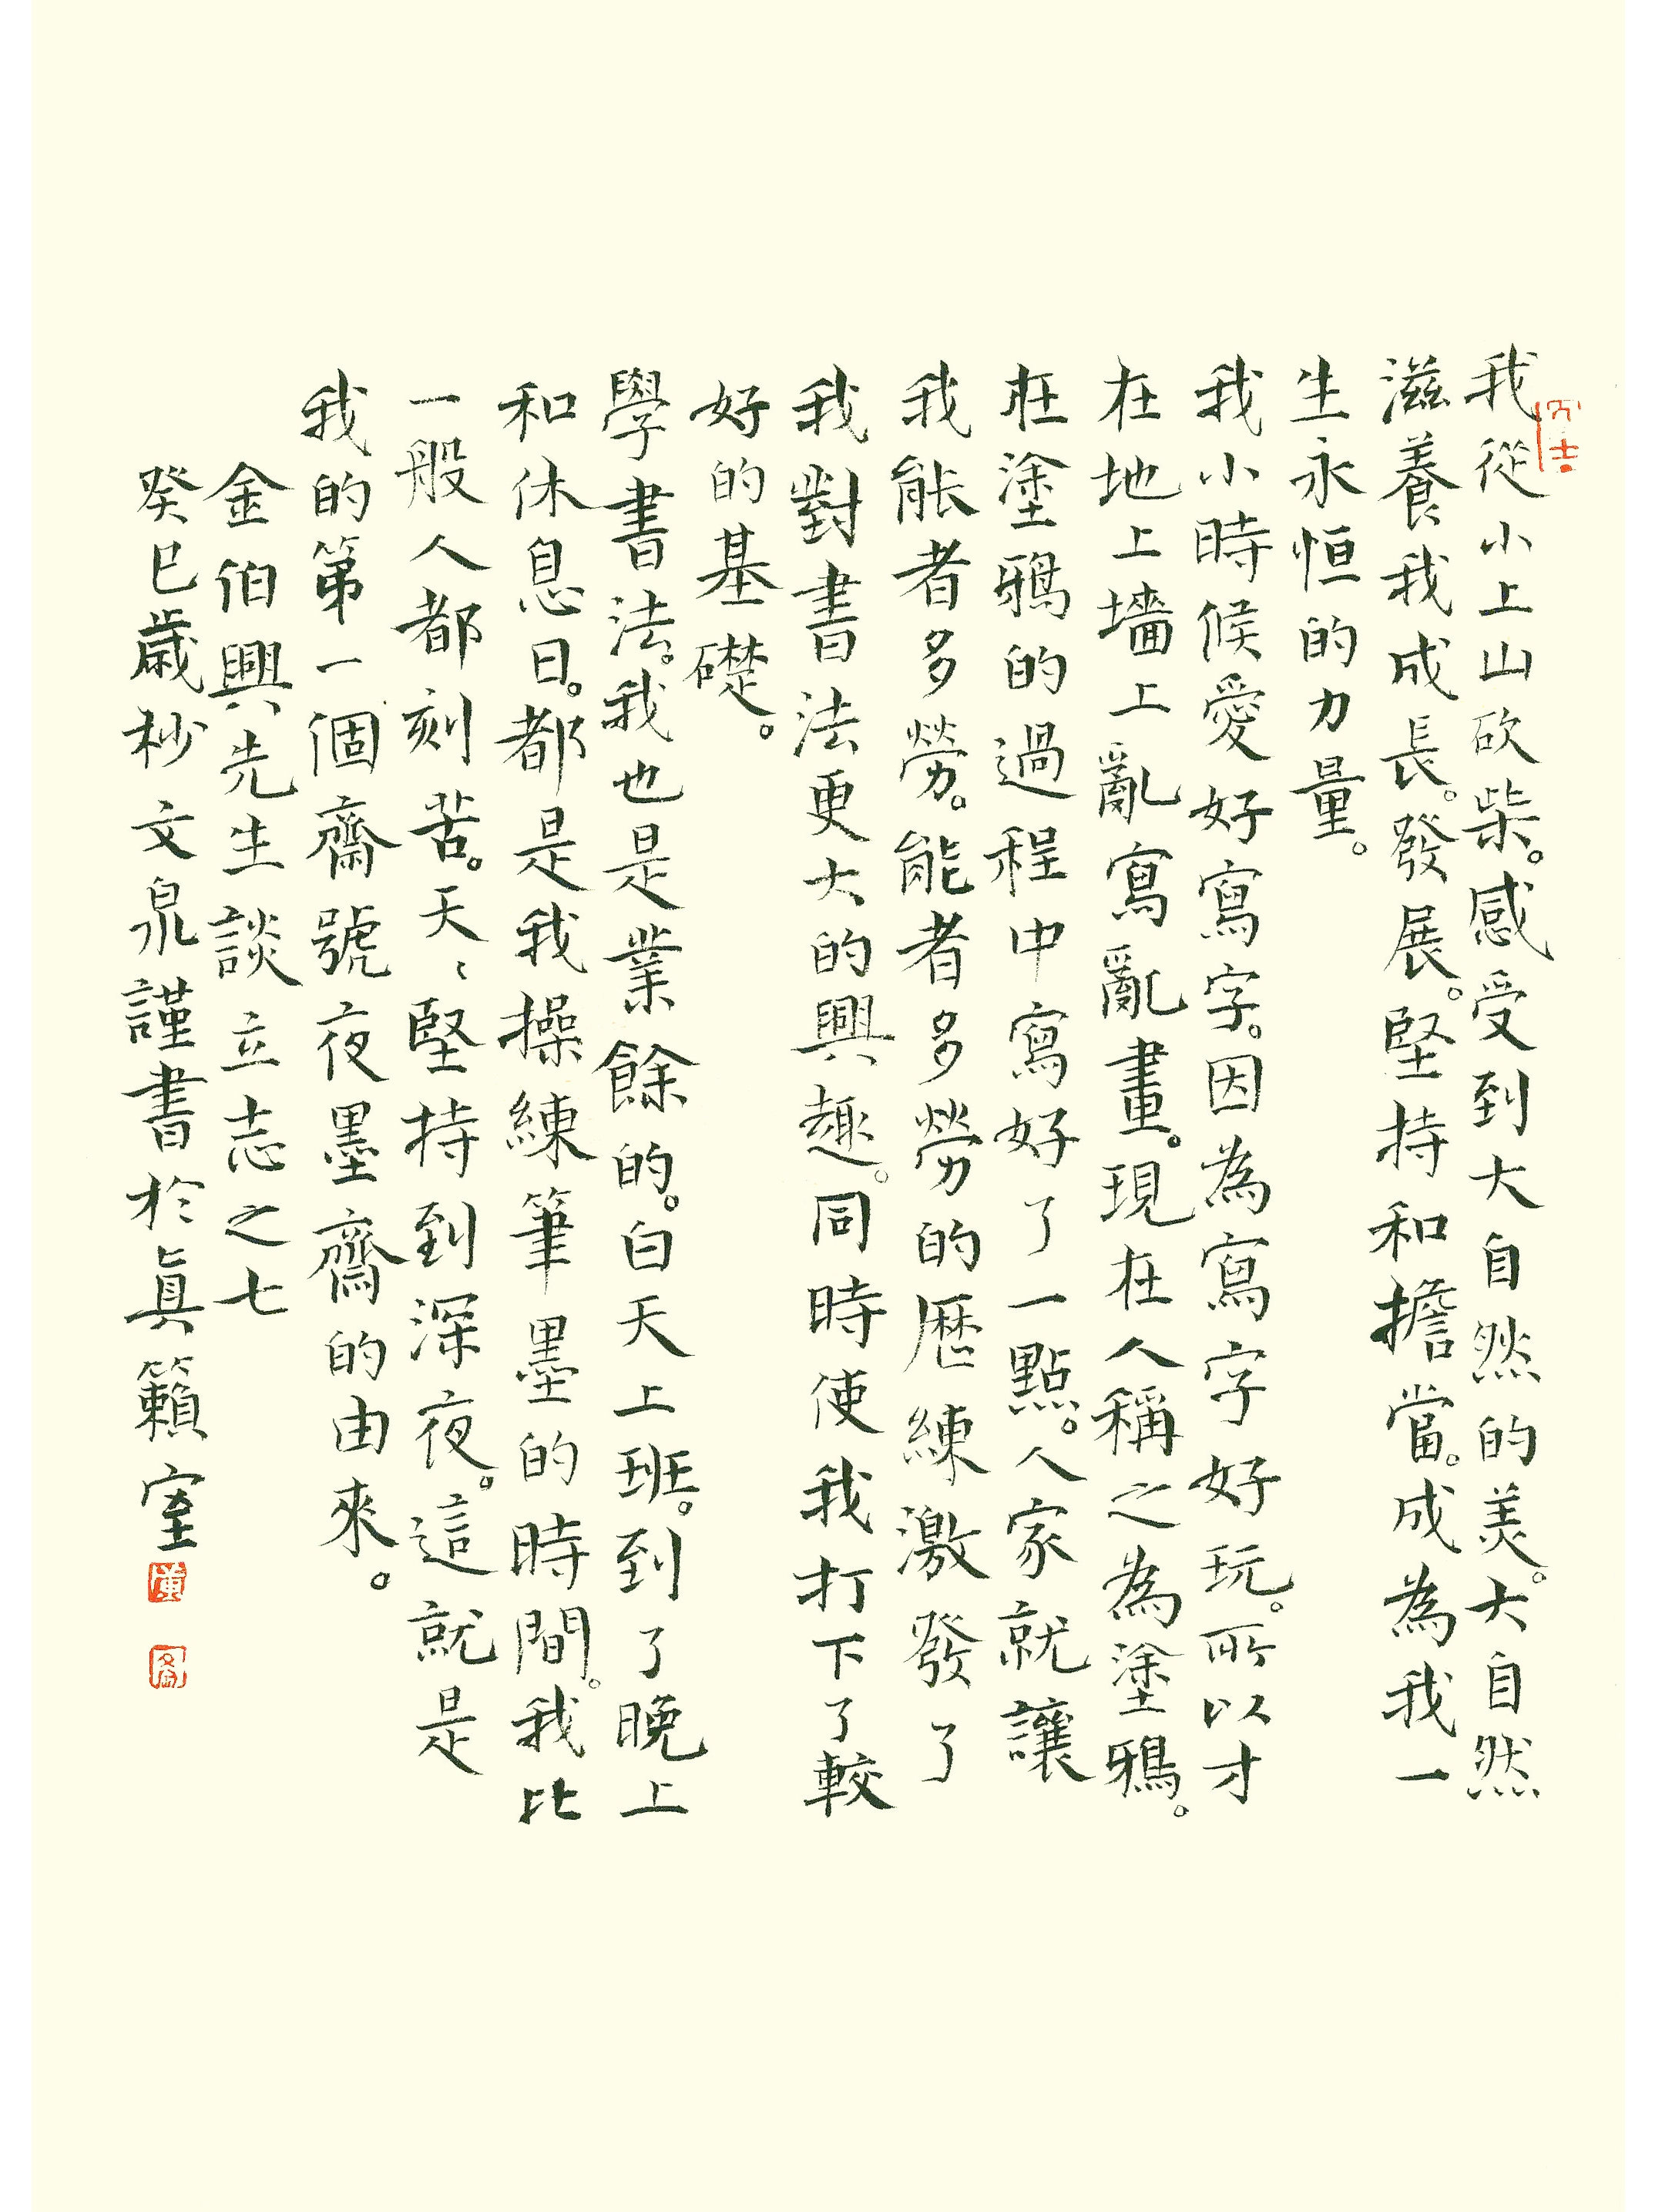 我從小上山砍柴。感受到大自然的美。大自然
滋養我成長。發展。堅持和擔當。成為我一
生永恒的力量。
我小時候愛好寫字。因為寫字好玩。所以才
在地上墻上亂寫亂畫。現在人稱之為塗鴉。
在塗鴉的過程中寫好了一點。人家就讓
我能者多勞。能者多勞的歷練激發了
我對書法更大的興趣。同時使我打下了較
好的基礎。
學書法。我也是業餘的。白天上班。到了晚上
和休息日。都是我操練筆墨的時間。我比
一般人都刻苦。天〻堅持到深夜。這就是
我的第一個齋號夜墨齋的由來。
金伯興先生談立志之七
癸巳歲杪文泉謹書於真籟室